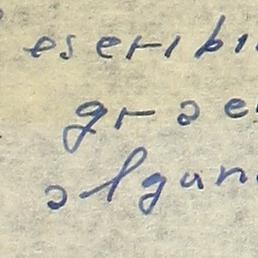 escribi
grae
algun